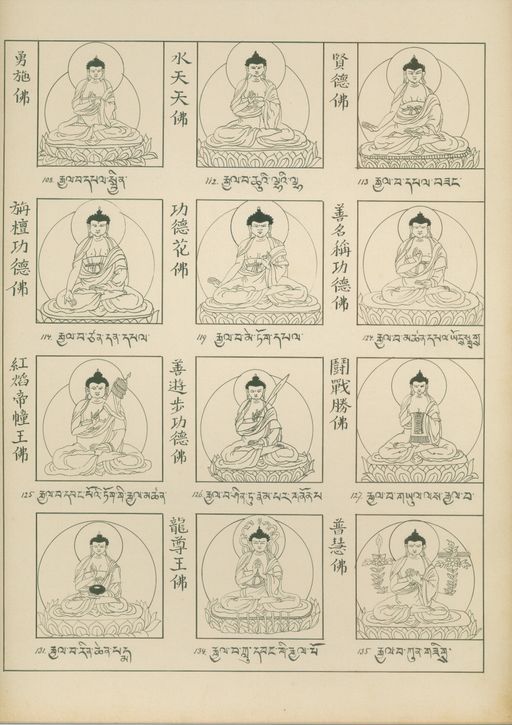 勇施佛
水天天佛
賢德佛
108. རྒྱལ་བ་དཔལ་སྦྱིན་
112. རྒྱལ་བ་ཆུའི་ལྷའི་ལྷ
113 རྒྱལ་བ་དཔལ་བཟང
旃檀功德佛
功德花佛
善名稱功德佛
114. རྒྱལ་བ་ཙན་དན་དཔལ་
119. རྒྱལ་བ་མེ་ཏོག་དཔལ་
124. རྒྱལ་བ་མཚན་དཔལ་
紅焰帝幢王佛
善遊步功德佛
鬪戰勝佛
125 རྒྱལ་བ་དབང་པོའི་ཏོག་གི་རྒྱལ་མཚན
126. རྒྱལ་བ་ཤིན་ཏུ་རྣམ་པར་གནོན་པ
127. རྒྱལ་བ་གཡུལ་ལས་རྒྱལ་བ་
龍尊王佛
普慧佛
131. རྒྱལ་བ་རིན་ཆེན་པདྨ
134. རྒྱལ་བ་ཀླུ་དབང་གི་རྒྱལ་པོ
135 རྒྱལ་བ་ཀུན་གཟིགས་